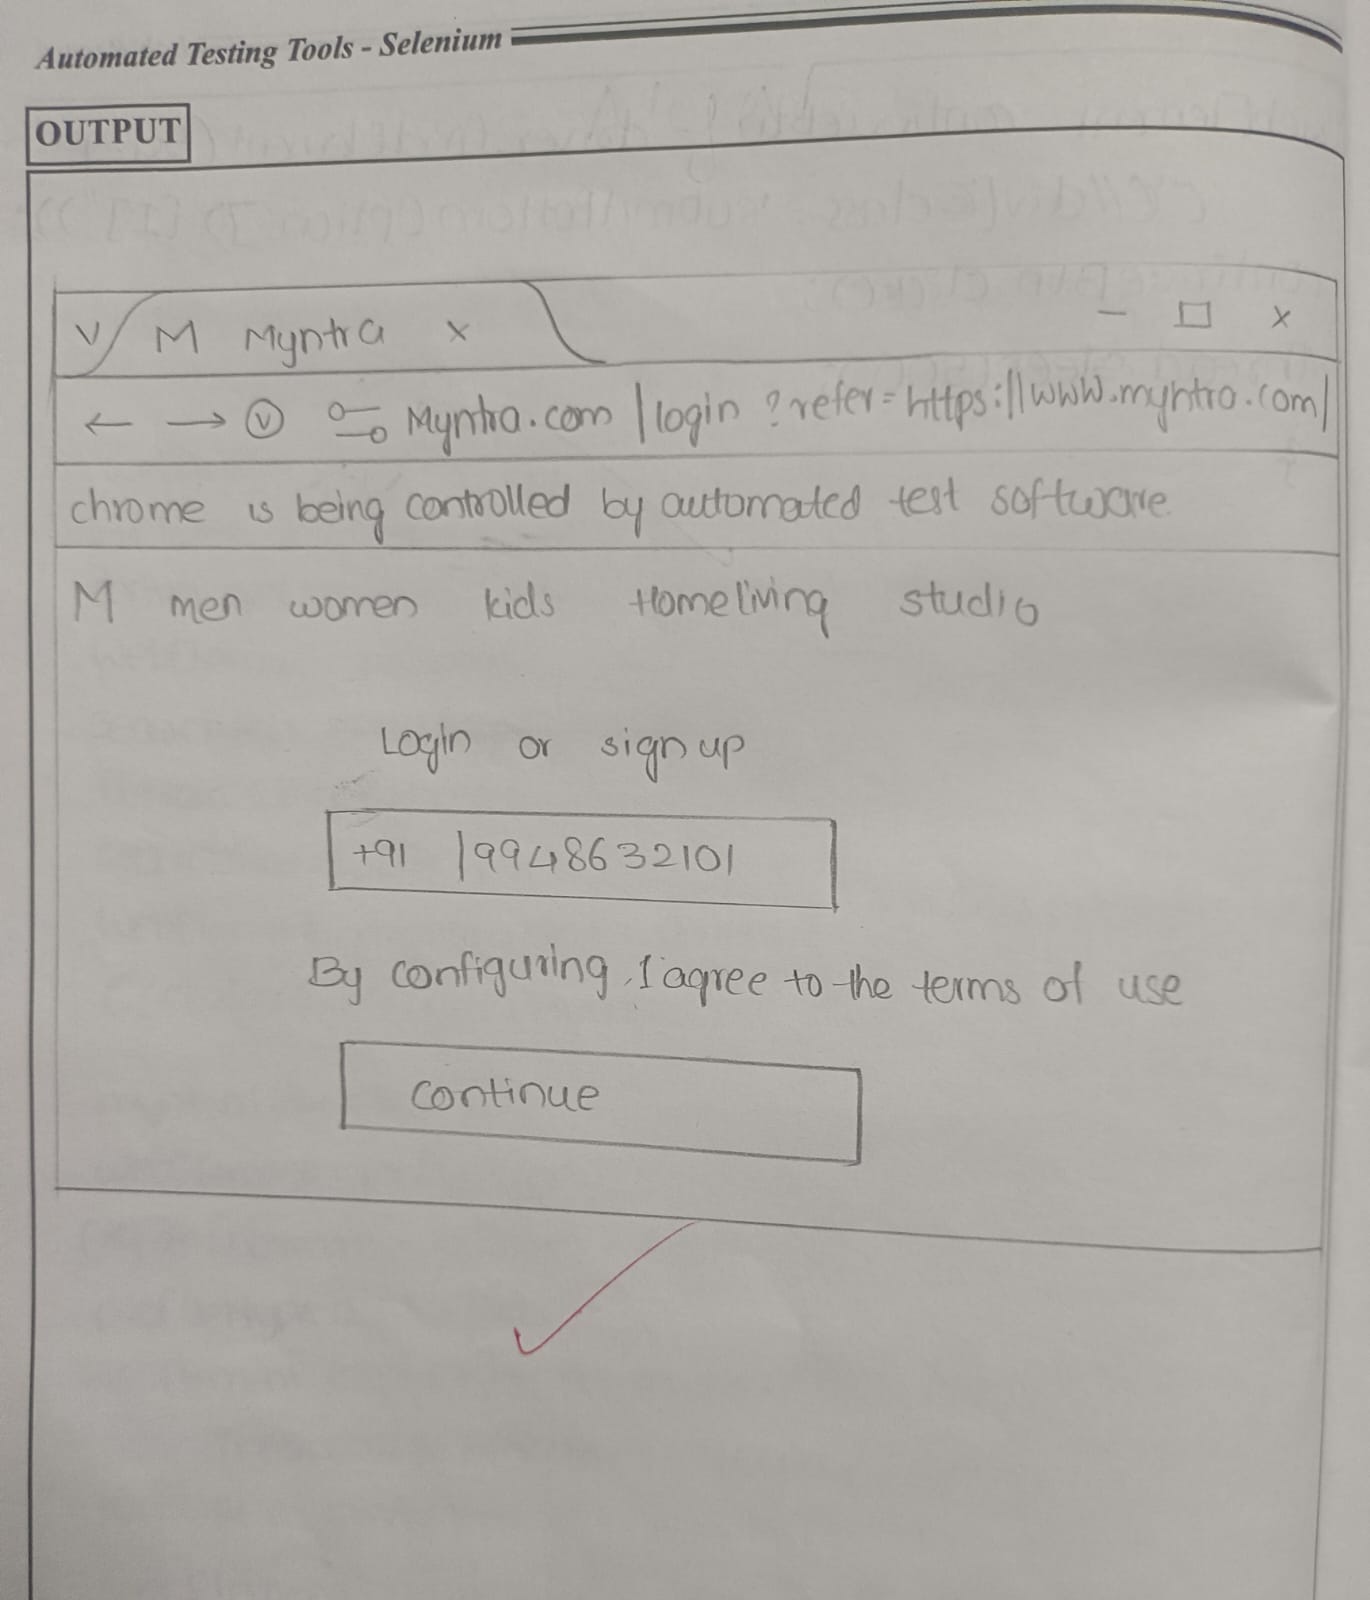 Automated Testing Tools - Selenium
OUTPUT
V M Myntra x - □ x
← → Myntra.com | login ? refer = https://www.myntra.com/
chrome is being controlled by automated test software
M men women kids Homeliving studio
Login or sign up
+91 | 9948632101
By configuring, I agree to the terms of use
continue